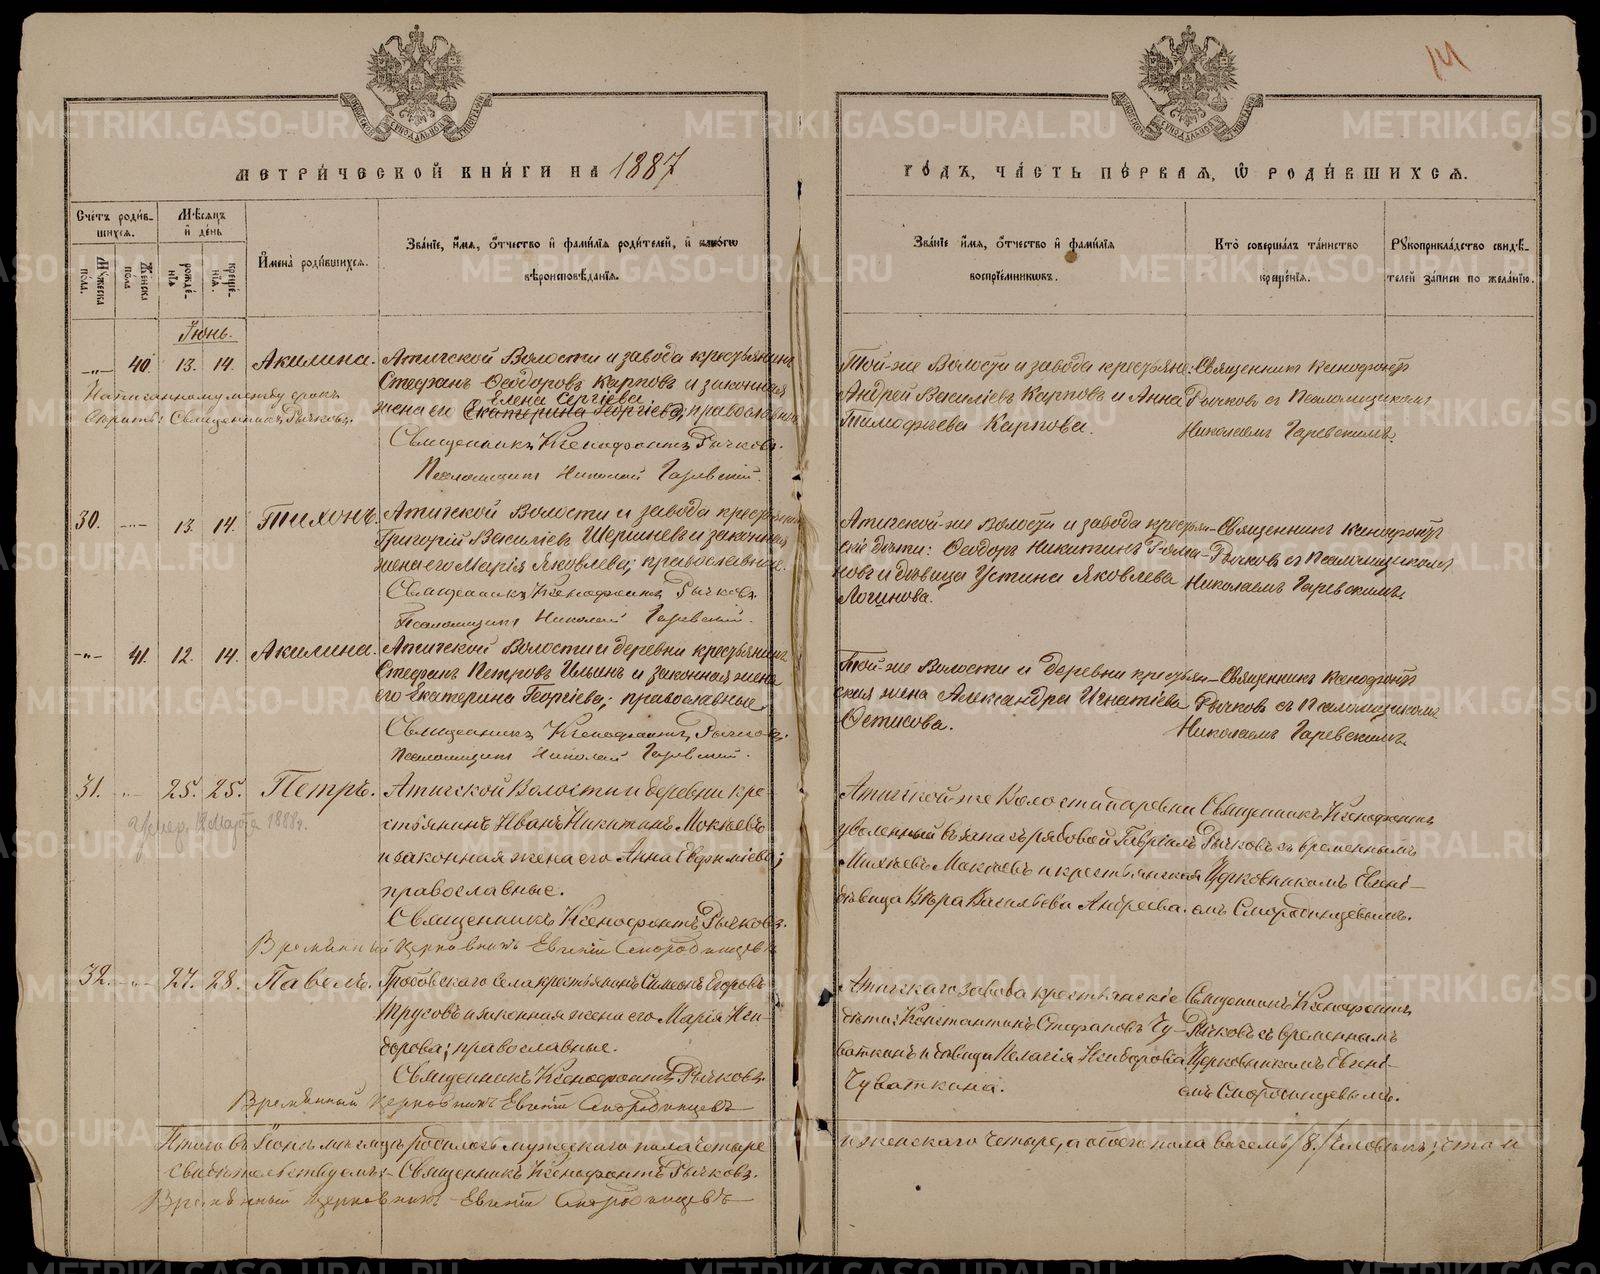 14
МЕТРИЧЕСКОЙ КНИГИ НА 1887
Счетъ родив-
шихся.
Мѣсяцъ
и день
Мужеска
пола.
Женска
пола
рожде-
нія
креще-
нія.
Имена родившихся.
Званіе, имя, отчество и фамилія родителей, и какого
вѣроисповѣданія.
Іюнь.
-"- 40. 13. 14. Акилина. Атигской Волости и завода крестьянинъ
Стефанъ Ѳеодоровъ Карповъ и законная
Елена Сергіева
жена его Екатерина Георгіева, православные
Написанному между строкъ
вѣрить: Священникъ Рычковъ.
Священникъ Ксенофонтъ Рычковъ.
Псаломщикъ Николай Гаревскій.
30. -"- 13. 14. Тихонъ. Атигской Волости и завода крестьянинъ
Григорій Василіевъ Шершневъ и законная
жена его Марія Яковлева; православные.
Священникъ Ксенофонтъ Рычковъ
Псаломщикъ Николай Гаревскій.
-"- 41. 12. 14. Акилина. Атигской Волости и деревни крестьянинъ
Стефанъ Петровъ Ильинъ и законная жена
его Екатерина Георгіева; православные
Священникъ Ксенофонтъ Рычковъ
Псаломщикъ Николай Гаревскій.
31. -"- 25. 25. Петръ. Атигской Волости и деревни кре-
стьянинъ Иванъ Никитинъ Мокѣевъ
и законная жена его Анна Евфиміева;
православные.
Умер. Марта 1888 г.
Священникъ Ксенофонтъ Рычковъ.
Временный церковникъ Евгеній Смородинцевъ
32. -"- 27. 28. Павелъ. Гробовскаго села крестьянинъ Симеонъ Егоровъ
Трусовъ и законная жена его Марія Иси-
дорова; православные.
Священникъ Ксенофонтъ Рычковъ
Временный церковникъ Евгеній Смородинцевъ
Итого въ Іюнѣ мѣсяцѣ родилось мужескаго пола четыре
свидѣтельствуемъ: Священникъ Ксенофонтъ Рычковъ.
Временный церковникъ Евгеній Смородинцевъ
ГОДЪ, ЧАСТЬ ПЕРВАЯ, Ѡ РОДИВШИХСЯ.
Званіе имя, отчество и фамилія
воспріемниковъ.
Кто совершалъ таинство
крещенія.
Рукоприкладство свидѣ-
телей записи по желанію.
Той-же Волости и завода крестьяне: Священникъ Ксенофонтъ
Андрей Василіевъ Карповъ и Анна Рычковъ съ Псаломщикомъ
Тимофѣева Карпова. Николаемъ Гаревскимъ.
Атигской-же Волости и завода крестьян- Священникъ Ксенофонтъ
скіе дѣти: Ѳеодоръ Никитинъ Рома- Рычковъ съ Псаломщикомъ
новъ и дѣвица Устина Яковлева Николаемъ Гаревскимъ.
Логинова.
Той-же Волости и Деревни крестьян- Священникъ Ксенофонтъ
ская жена Александра Игнатіева Рычковъ съ Псаломщикомъ
Фетисова. Николаемъ Гаревскимъ.
Атигской-же Волости и деревни Священникъ Ксенофонтъ
уволенный въ запасъ рядовой Гавріилъ Рычковъ съ временнымъ
Михѣевъ Мокѣевъ и крестьянская Церковникомъ Евгені-
дѣвица Вѣра Васильева Андреева. емъ Смородинцевымъ.
Атигскаго завода крестьянскіе Священникъ Ксенофонтъ
дѣти: Константинъ Стефановъ Чу- Рычковъ съ временнымъ
ваткинъ и дѣвица Пелагія Исидорова Церковникомъ Евгені-
Чуваткина. емъ Смородинцевымъ.
и женскаго четыре, а обоего пола восемь /8/ человѣкъ;
METRIKI.GASO-URAL.RU